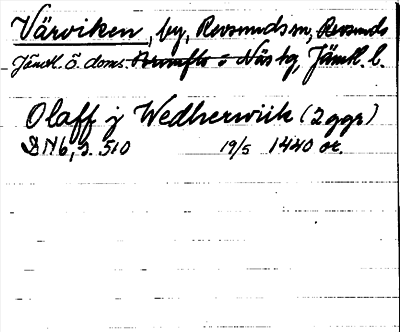 Värviken, by, Revsunds sn, Revsunds
Jämtl. ö. doms. Brunflo o Näs tg, Jämtl. l.
Olaff j Wedherwiik (2 ggr)
DN 6, s. 510 19/5 1440 or.